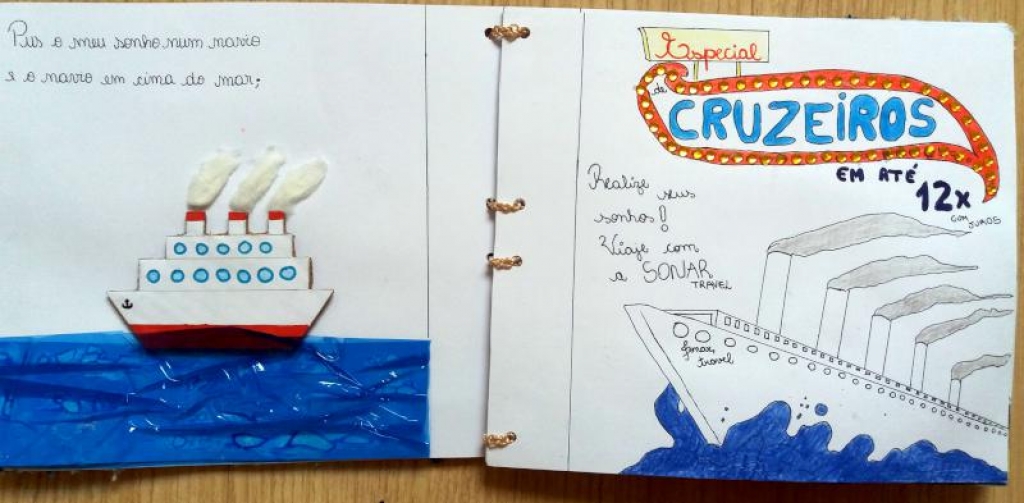 Pus o meu sonho num navio
e o navio em cima do mar;
Especial
de
CRUZEIROS
EM ATÉ
12x
COM JUROS
Realize seus
sonhos!
Viaje com
a SONAR
TRAVEL
travel